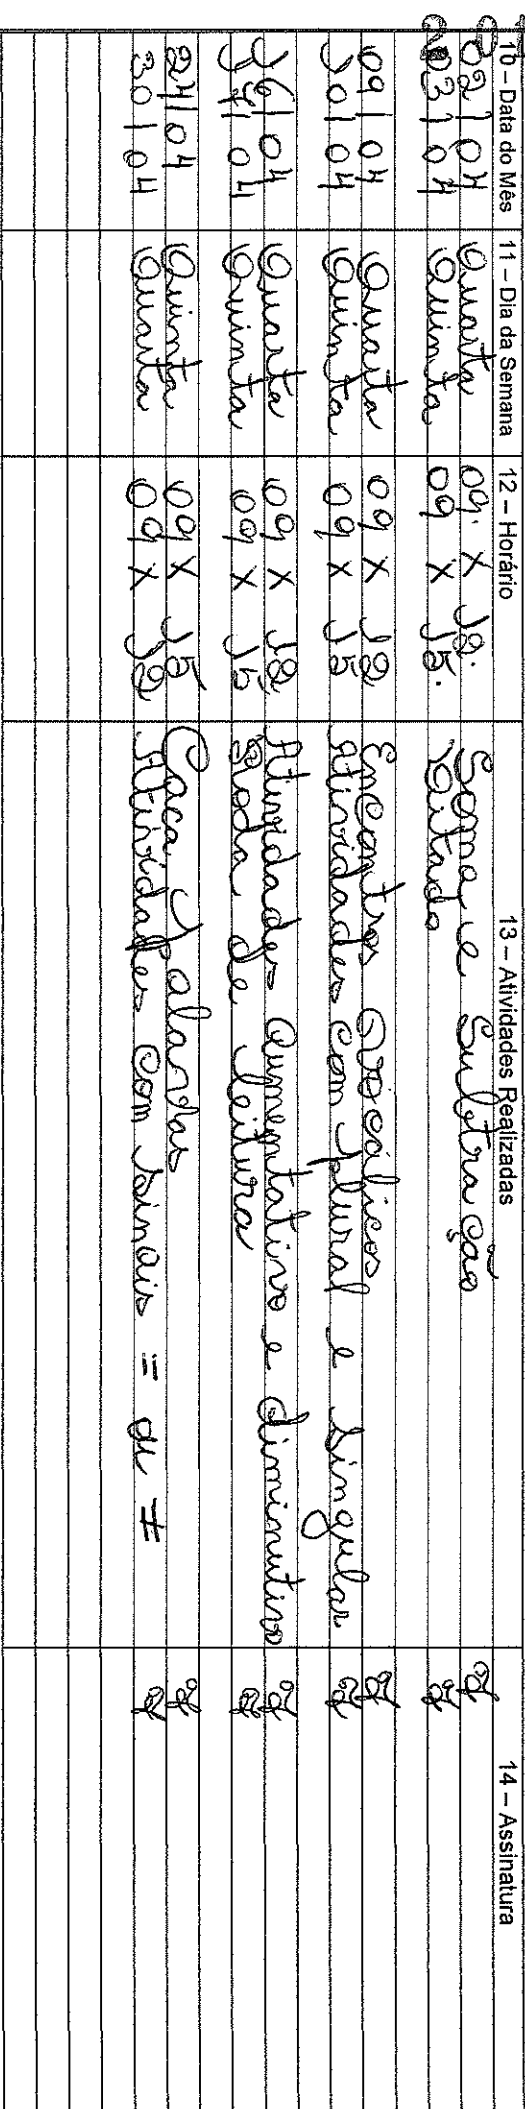 10 – Data do Mês 11 – Dia da Semana 12 – Horário 13 – Atividades Realizadas 14 – Assinatura
02/04 Quarta 09. X 12. Soma e Subtração
03/04 Quinta 09 X 15. Ditado
09/04 Quarta 09 X 12 Encontros Vocálicos
10/04 Quinta 09 X 15 Atividades com plural e Singular
16/04 Quarta 09 X 12 Atividades aumentativo e diminutivo
17/04 Quinta 09 X 15 Roda de leitura
24/04 Quinta 09 X 15 Caça Palavras
30/04 Quarta 09 X 12 Atividades com Sinais = de ≠